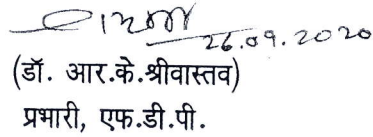 26.09.2020
(डॉ. आर.के.श्रीवास्तव)
प्रभारी, एफ.डी.पी.